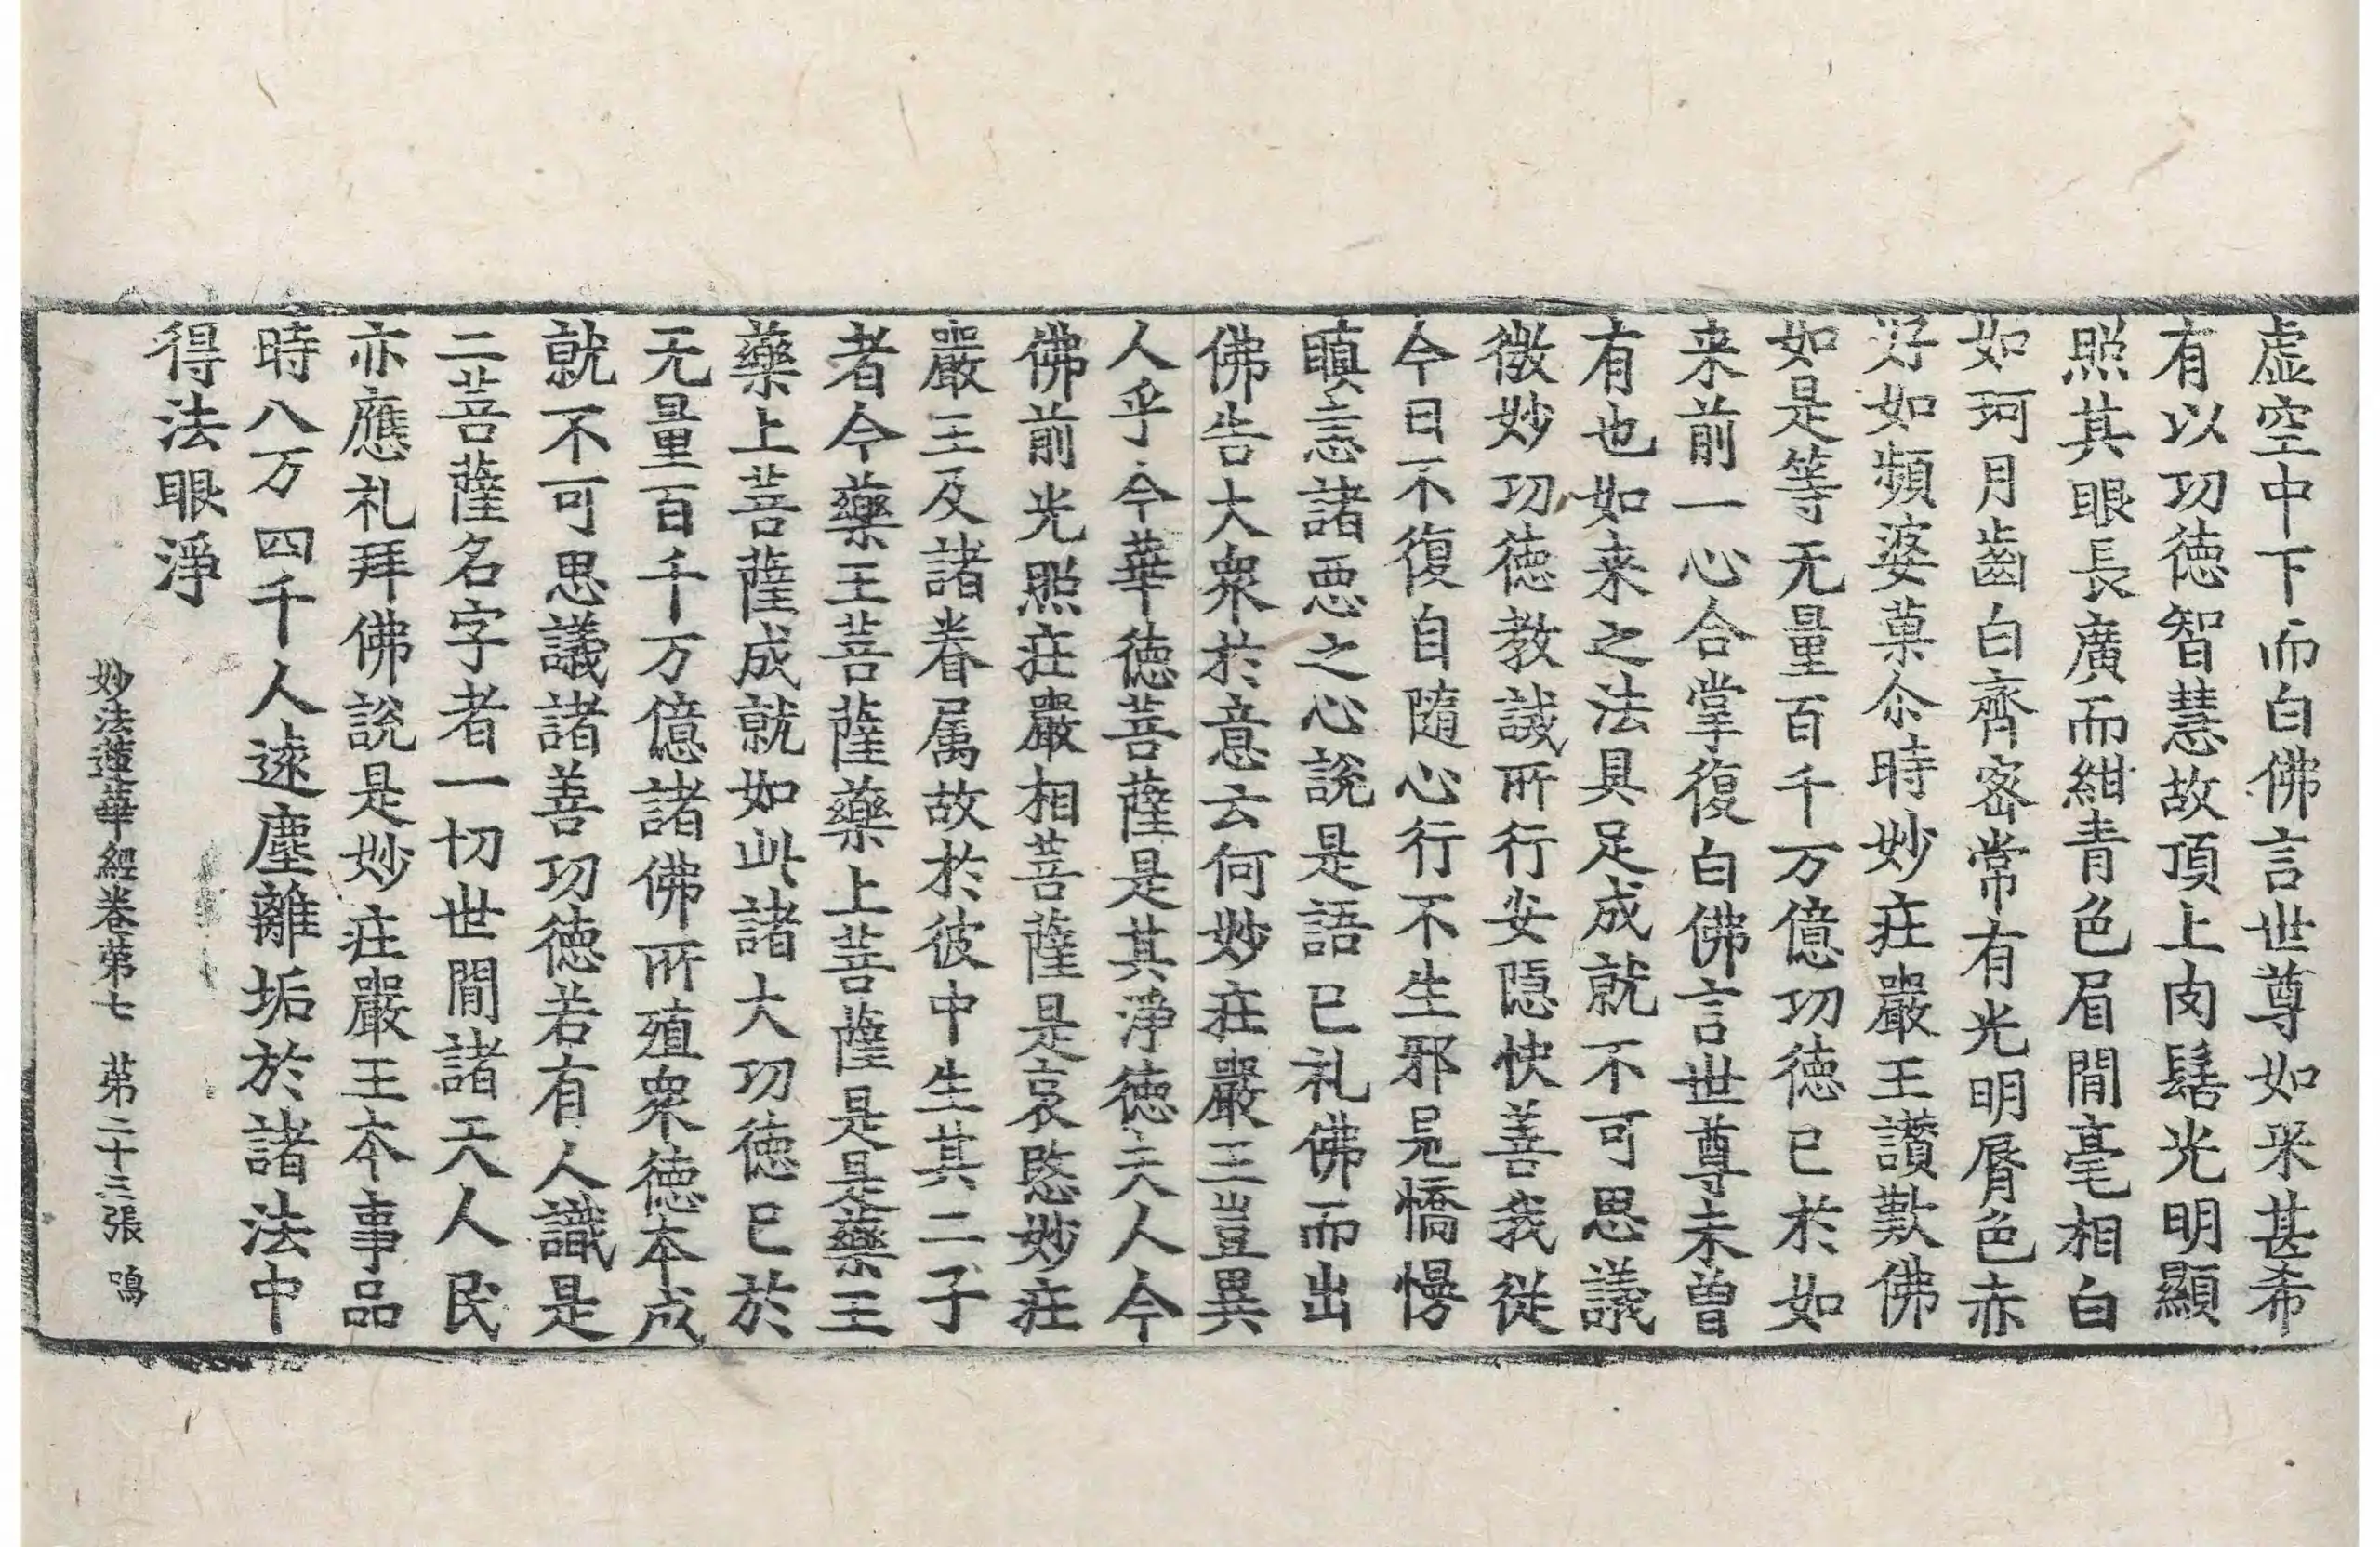 虚空中下而白佛言世尊如来甚希
有以功徳智慧故頂上肉髻光明顯
照其眼長廣而紺青色眉間毫相白
如珂月齒白齊密常有光明脣色赤
好如頻婆菓尒時妙疘嚴王讃歎佛
如是等无量百千万億功徳已於如
来前一心合掌復白佛言世尊未曽
有也如来之法具足成就不可思議
微妙功徳教誡所行安隠快善我従
今日不復自隨心行不生邪見憍慢
瞋恚諸悪之心說是語已礼佛而出
佛告大衆於意云何妙疘嚴王豈異
人乎今華徳菩薩是其淨徳夫人今
佛前光照疘嚴相菩薩是哀愍妙疘
嚴王及諸眷属故於彼中生其二子
者今藥王菩薩藥上菩薩是是藥王
藥上菩薩成就如此諸大功徳已於
无量百千万億諸佛所殖衆徳本成
就不可思議諸善功徳若有人識是
二菩薩名字者一切世間諸天人民
亦應礼拜佛說是妙疘嚴王本事品
時八万四千人遠塵離垢於諸法中
得法眼淨
妙法蓮華經卷第七 第二十三張 鳴